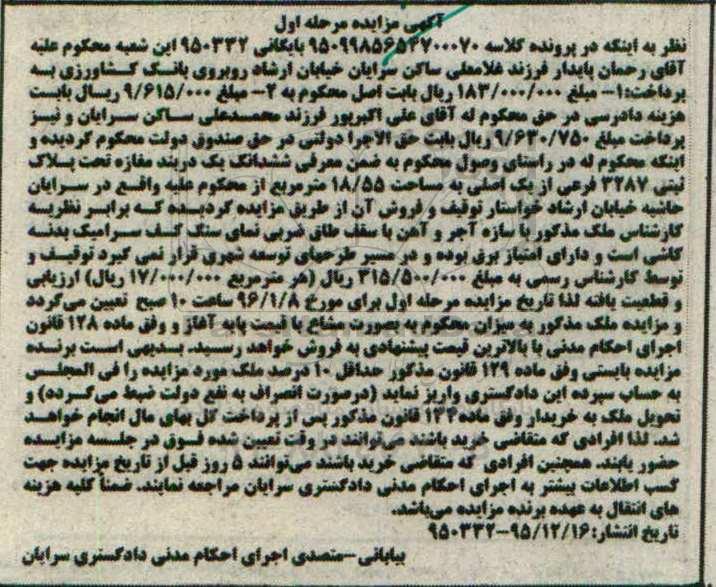 آگهی مزایده مرحله اول
نظر به اینکه در پرونده کلاسه ۹۵۰۹۹۸۵۶۵۴۷۰۰۰۷۰ بایگانی ۹۵۰۳۳۲ این شعبه محکوم علیه
آقای رحمان پایدار فرزند غلامعلی ساکن سرایان خیابان ارشاد روبروی بانک کشاورزی به
پرداخت:۱- مبلغ ۱۸۳/۰۰۰/۰۰۰ ریال بابت اصل محکوم به ۲- مبلغ ۹/۶۱۵/۰۰۰ ریال بابت
هزینه دادرسی در حق محکوم له آقای علی اکبرپور فرزند محمدعلی ساکن سرایان و نیز
پرداخت مبلغ ۹/۶۳۰/۷۵۰ ریال بابت حق الاجرا دولتی در حق صندوق دولت محکوم گردیده و
اینکه محکوم له در راستای وصول محکوم به ضمن معرفی ششدانگ یک دربند مغازه تحت پلاک
ثبتی ۳۲۸۷ فرعی از یک اصلی به مساحت ۱۸/۵۵ مترمربع از محکوم علیه واقع در سرایان
حاشیه خیابان ارشاد خواستار توقیف و فروش آن از طریق مزایده گردیده که برابر نظریه
کارشناس ملک مذکور با سازه آجر و آهن با سقف طاق ضربی نمای سنگ کف سرامیک بدنه
کاشی است و دارای امتیاز برق بوده و در مسیر طرحهای توسعه شهری قرار نمی گیرد توقیف و
توسط کارشناس رسمی به مبلغ ۳۱۵/۵۰۰/۰۰۰ ریال (هر مترمربع ۱۷/۰۰۰/۰۰۰ ریال) ارزیابی
و قطعیت یافته لذا تاریخ مزایده مرحله اول برای مورخ ۹۶/۱/۸ ساعت ۱۰ صبح تعیین می گردد
و مزایده ملک مذکور به میزان محکوم به بصورت مشاع با قیمت پایه آغاز و وفق ماده ۱۲۸ قانون
اجرای احکام مدنی با بالاترین قیمت پیشنهادی به فروش خواهد رسید. بدیهی است برنده
مزایده بایستی وفق ماده ۱۲۹ قانون مذکور حداقل ۱۰ درصد ملک مورد مزایده را فی المجلس
به حساب سپرده این دادگستری واریز نماید (درصورت انصراف به نفع دولت ضبط می گردد) و
تحویل ملک به خریدار وفق ماده۱۳۴ قانون مذکور پس از پرداخت کل بهای مال انجام خواهد
شد. لذا افرادی که متقاضی خرید باشند می‌توانند در وقت تعیین شده فوق در جلسه مزایده
حضور یابند. همچنین افرادی که متقاضی خرید باشند می‌توانند ۵ روز قبل از تاریخ مزایده جهت
کسب اطلاعات بیشتر به اجرای احکام مدنی دادگستری سرایان مراجعه نمایند. ضمناً کلیه هزینه
های انتقال به عهده برنده مزایده می‌باشد.
تاریخ انتشار:۹۵/۱۲/۱۶-۹۵۰۳۳۲
بیابانی-متصدی اجرای احکام مدنی دادگستری سرایان